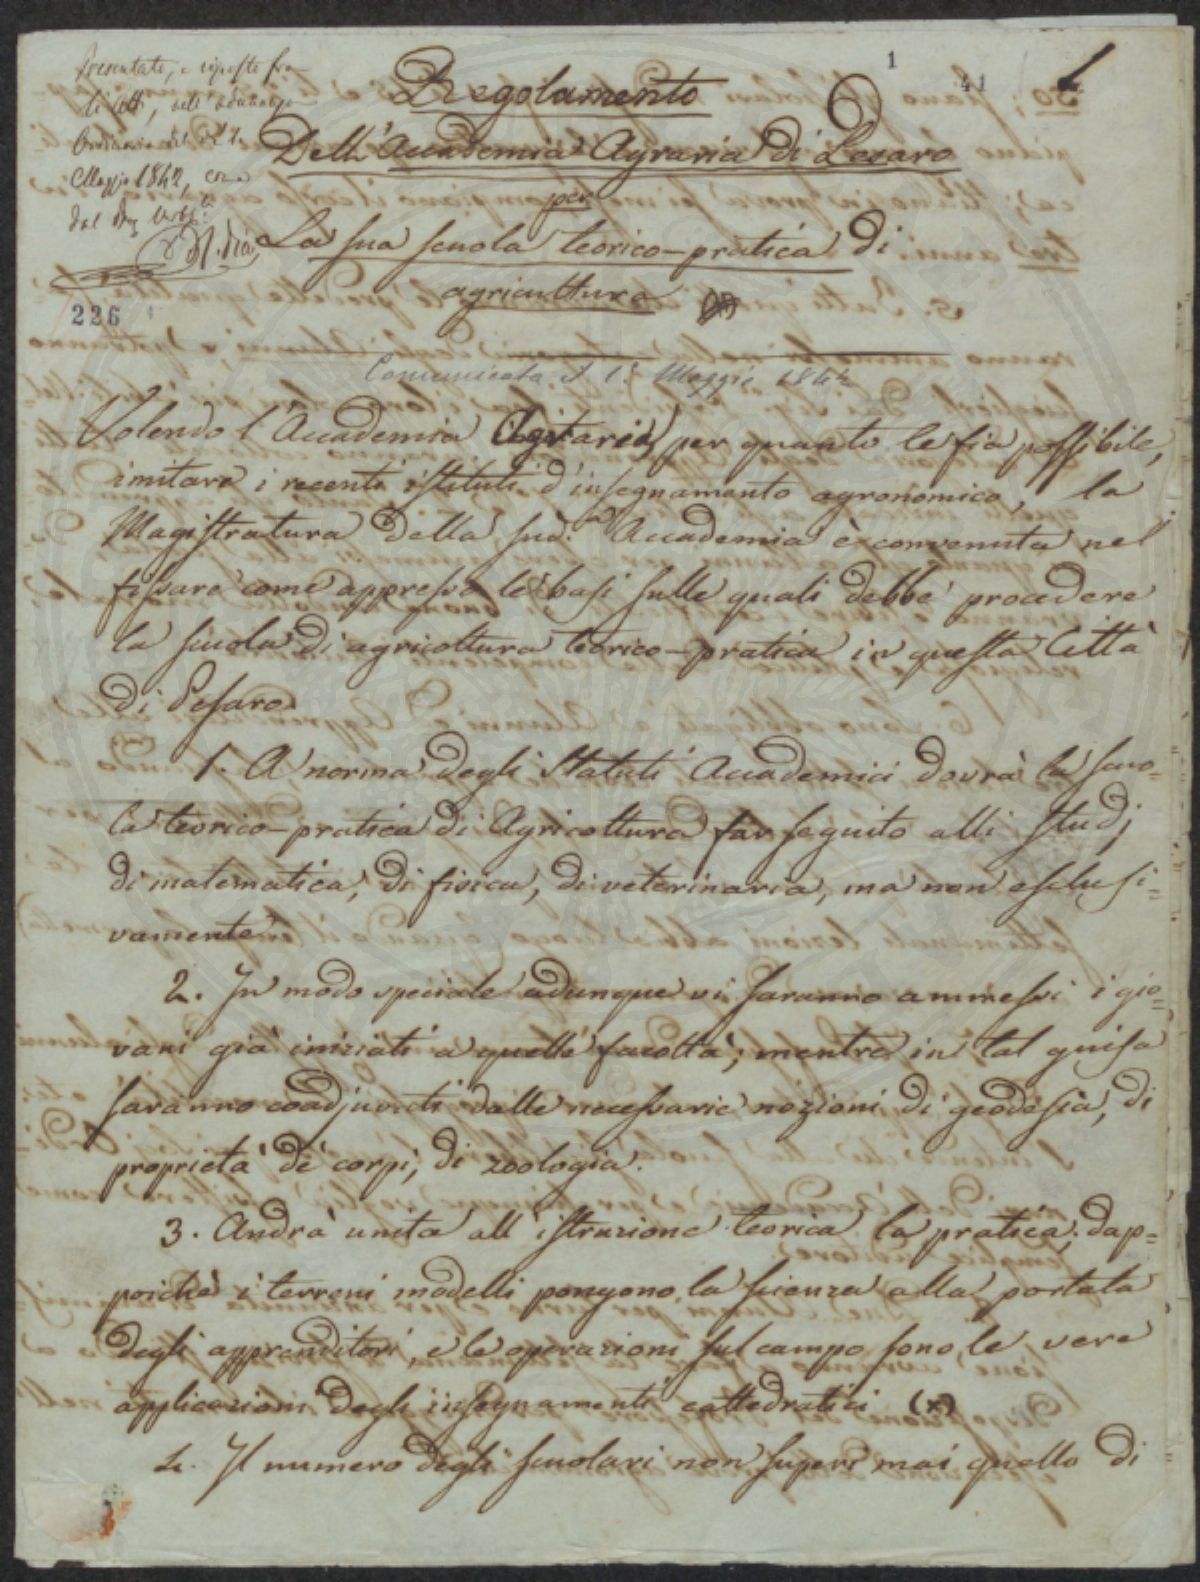 1
41
1
6
Presentato, e riposto fra
li atti, nell' adunanza
Ordinaria del dì 1.
Maggio 1842, come
dal
226
Regolamento
Dell' Accademia Agraria di Pesaro
per
La sua scuola teorico-pratica di
agricoltura
Comunicato il 1.° Maggio 1842
Volendo l'Accademia Agraria, per quanto le fia possibile,
imitare i recenti istituti d'insegnamento agronomico, la
Magistratura della sud.a Accademia è convenuta nel
fissare come appresso le basi sulle quali debbe procedere
la scuola di agricoltura teorico-pratica in questa Città
di Pesaro.
1. A norma degli Statuti Accademici dovrà la scuo=
la teorico-pratica di Agricoltura far seguito alli studj
di matematica, di fisica, di veterinaria, ma non esclusi=
vamente.
2. In modo speciale adunque vi saranno ammessi i gio=
vani già iniziati a quelle facoltà; mentre in tal guisa
saranno coadjuvati dalle necessarie nozioni di geodesia, di
proprietà de' corpi, di zoologia.
3. Andrà unita all' istruzione teorica la pratica; dap=
poichè i terreni modelli pongono la scienza alla portata
degli apprenditori, e le operazioni sul campo sono le vere
applicazioni degli insegnamenti cattedratici (x)
4. Il numero degli scuolari non superi mai quello di